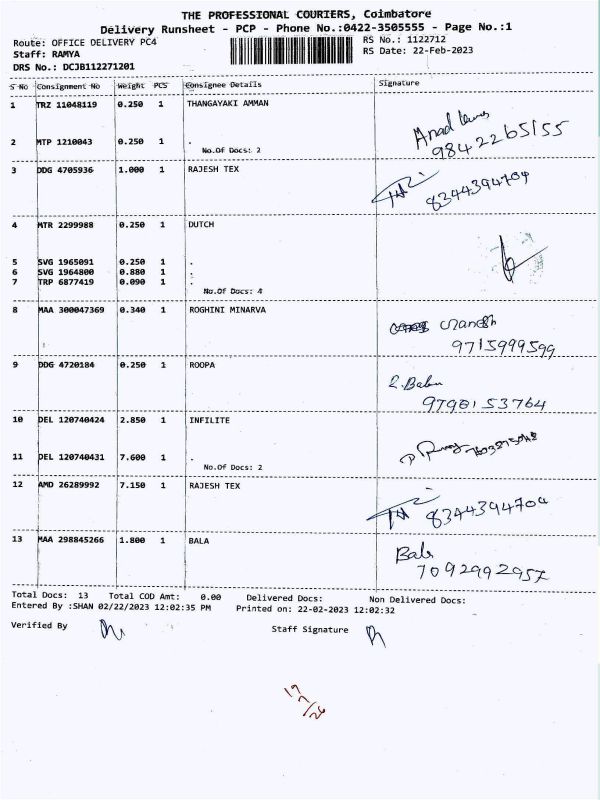 THE PROFESSIONAL COURIERS, Coimbatore
Delivery Runsheet - PCP - Phone No.:0422-3505555 - Page No.:1
Route: OFFICE DELIVERY PC4 RS No.: 1122712
Staff: RAMYA RS Date: 22-Feb-2023
DRS No.: DCJB112271201
S No Consignment No Weight PCS Consignee Details Signature
1 TRZ 11048119 0.250 1 THANGAYAKI AMMAN
2 MTP 1210043 0.250 1 .
9842265155
No.Of Docs: 2
3 DDG 4705936 1.000 1 RAJESH TEX
8344394704
4 MTR 2299988 0.250 1 DUTCH
5 SVG 1965091 0.250 1 .
6 SVG 1964800 0.880 1 .
7 TRP 6877419 0.090 1 .
No.Of Docs: 4
8 MAA 300047369 0.340 1 ROGHINI MINARVA
9715999599
9 DDG 4720184 0.250 1 ROOPA
R. Babu
9798153764
10 DEL 120740424 2.850 1 INFILITE
11 DEL 120740431 7.600 1 .
No.Of Docs: 2
12 AMD 26289992 7.150 1 RAJESH TEX
8344394704
13 MAA 298845266 1.800 1 BALA
Bala
7092992957
Total Docs: 13 Total COD Amt: 0.00 Delivered Docs: Non Delivered Docs:
Entered By :SHAN 02/22/2023 12:02:35 PM Printed on: 22-02-2023 12:02:32
Verified By Staff Signature